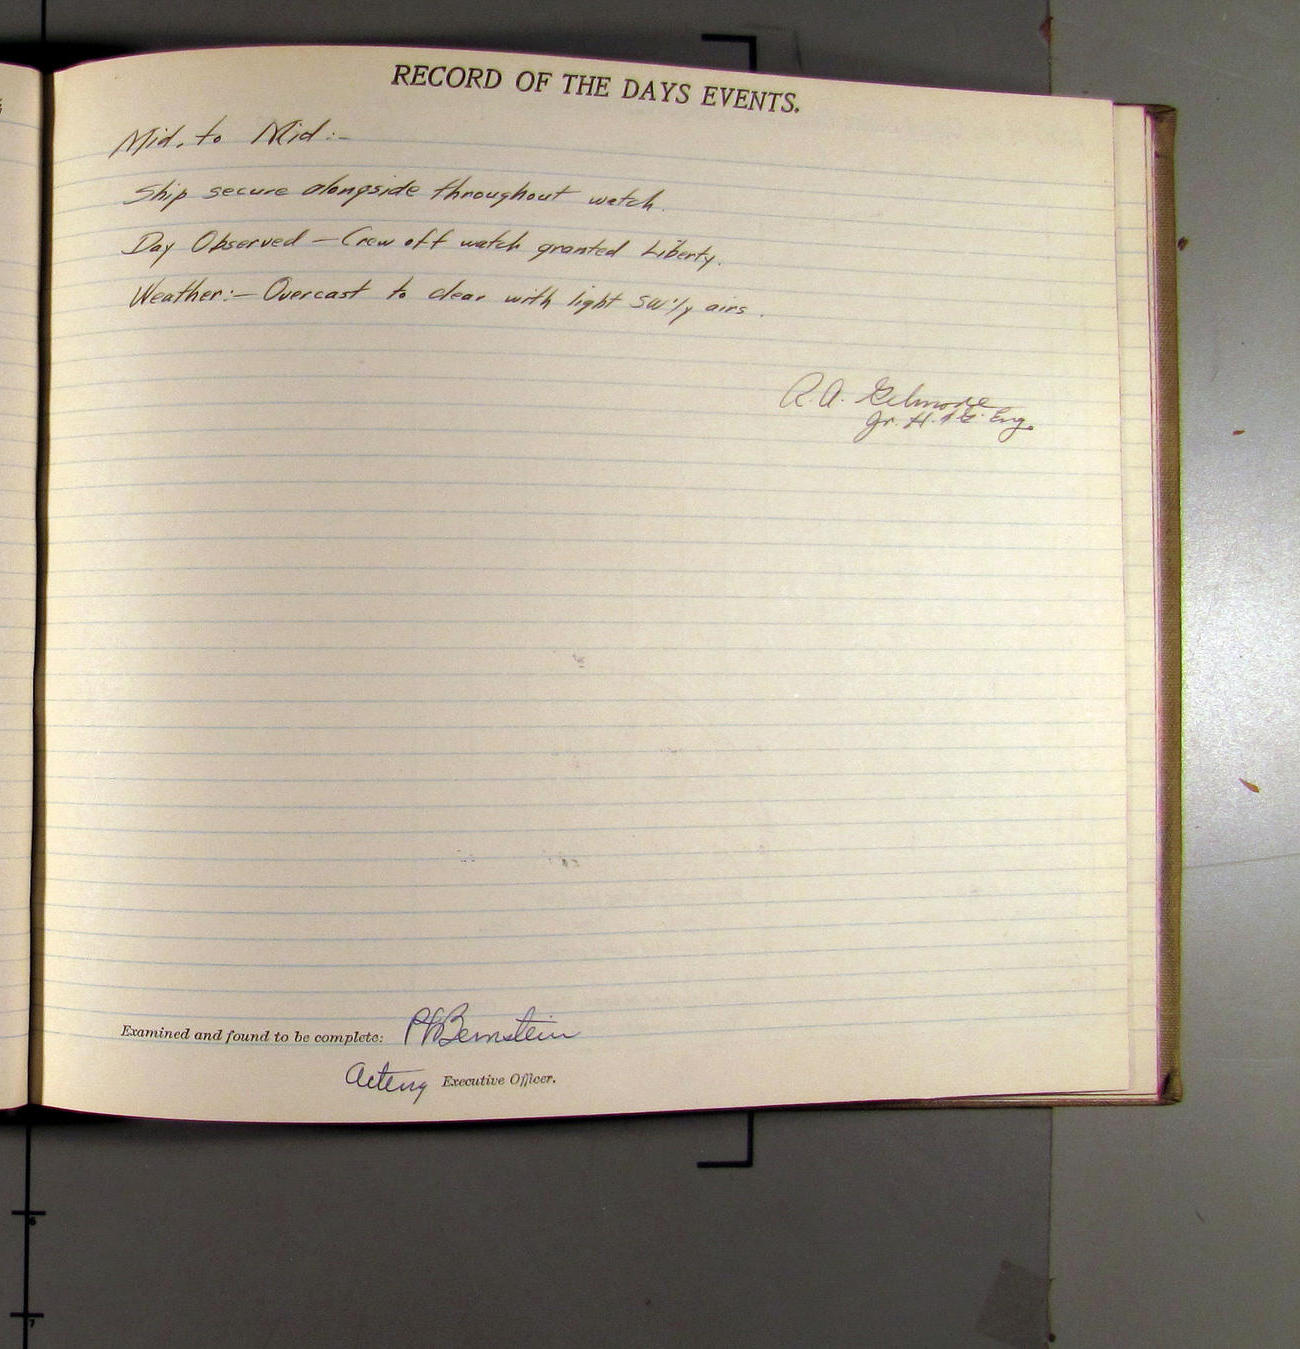 RECORD OF THE DAYS EVENTS.
Mid. to Mid:-
Ship secure alongside throughout watch.
Day Observed - Crew off watch granted Liberty.
Weather:- Overcast to clear with light SW'ly airs.
R. A. Gilmore
Jr. H. & G. Eng.
Examined and found to be complete: Bernstein
Acting Executive Officer.
6
7